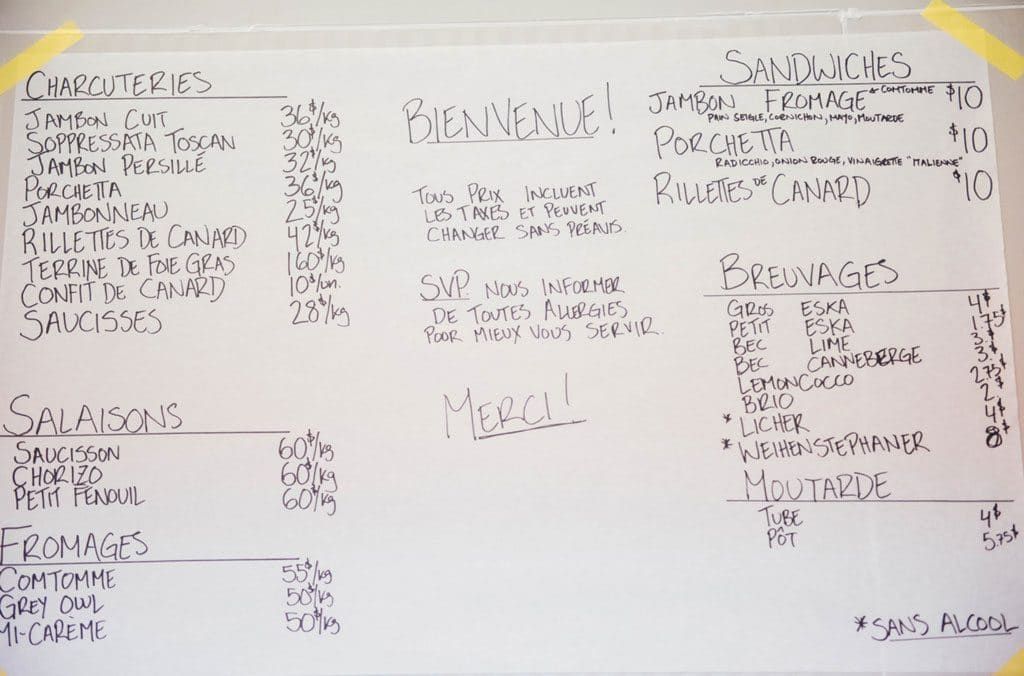 CHARCUTERIES
JAMBON CUIT 36$/kg
SOPPRESSATA TOSCAN 30$/kg
JAMBON PERSILLÉ 32$/kg
PORCHETTA 36$/kg
JAMBONNEAU 25$/kg
RILLETTES DE CANARD 42$/kg
TERRINE DE FOIE GRAS 160$/kg
CONFIT DE CANARD 10$/un.
SAUCISSES 28$/kg
SALAISONS
SAUCISSON 60$/kg
CHORIZO 60$/kg
PETIT FENOUIL 60$/kg
FROMAGES
COMTOMME 55$/kg
GREY OWL 50$/kg
MI-CARÈME 50$/kg
BIENVENUE!
TOUS PRIX INCLUENT
LES TAXES ET PEUVENT
CHANGER SANS PRÉAVIS.
SVP NOUS INFORMER
DE TOUTES ALLERGIES
POUR MIEUX VOUS SERVIR.
MERCI!
SANDWICHES
JAMBON FROMAGE & COMTOMME $10
PAIN SEIGLE, CORNICHON, MAYO, MOUTARDE
PORCHETTA $10
RADICCHIO, ONION ROUGE, VINAIGRETTE "MALIENNE"
RILLETTES DE CANARD $10
BREUVAGES
GROS ESKA 4$
PETIT ESKA 1.75$
BEC LIME 3$
BEC CANNEBERGE 3$
LEMONCOCCO 2.75$
BRIO 2$
* LICHER 4$
* WEIHENSTEPHANER 8$
MOUTARDE
TUBE 4$
PÔT 5.75$
*SANS ALCOOL